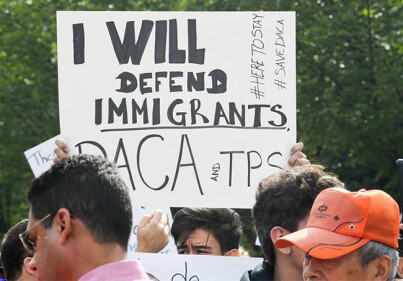 I WILL
DEFEND
IMMIGRANTS,
DACA AND TPS
#HERETOSTAY
#SAVEDACA
The
de